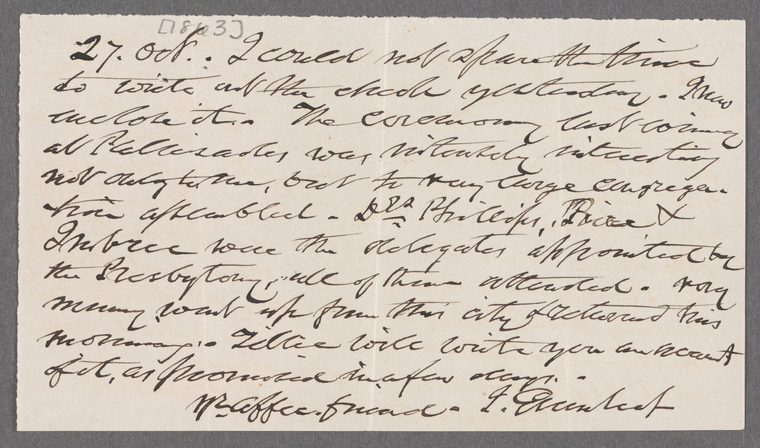 [1863]
27. Oct. . I could not spare the time
to write out the check yesterday. I now
enclose it. - The ceremony last evening
at Pallisades was intensely interesting
not only to me, but to very large congrega-
tion assembled. - Drs Phillips, &
Imbree were the delegates appointed by
the Presbytery, all of them attended. very
many went up from this city & returned this
morning. - Tillie will write you an account
of it, as promised in a few days. -
Yr. affec. friend - J.